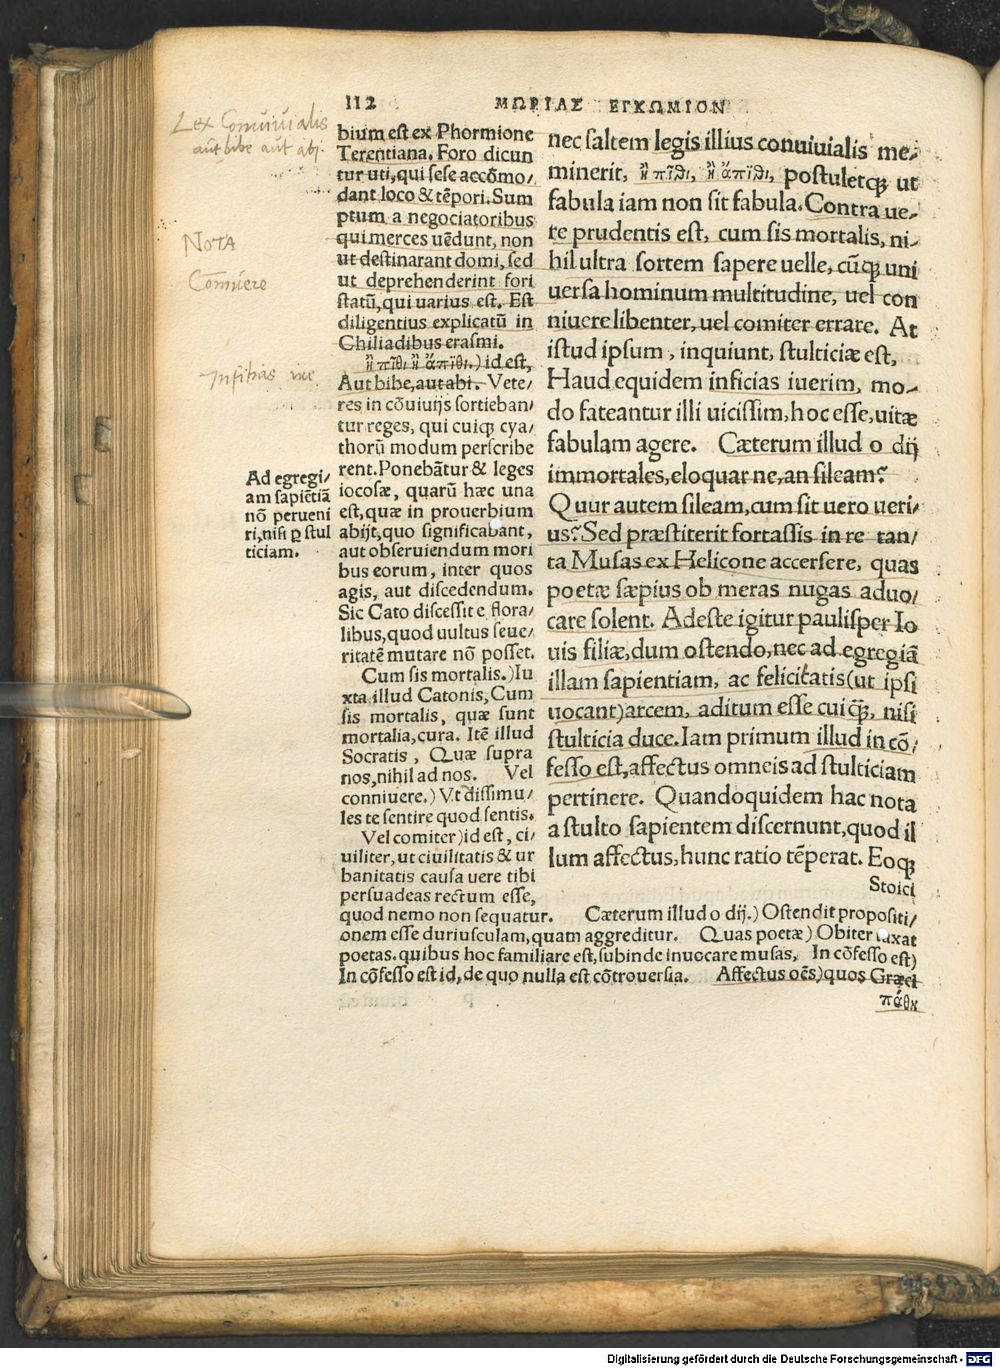 112
ΜΩΡΙΑΣ ΕΓΚΩΜΙΟΝ
Lex Conuiuialis
aut bibe aut abi
NOTA
Coniuere
Infitias ire
Ad egregi/
am sapiētiā
nō perueni
ri, nisi ꝑ stul
ticiam.
bium est ex Phormione
Terentiana. Foro dicun
tur uti, qui sese accōmo/
dant loco & tēpori. Sum
ptum a negociatoribus
qui merces uēdunt, non
ut destinarant domi, sed
ut deprehenderint fori
statū, qui uarius est. Est
diligentius explicatū in
Chiliadibus erasmi.
ἢ πῖθι ἢ ἄπιθι.) id est,
Aut bibe, aut abi. Vete/
res in cōuiuijs sortieban/
tur reges, qui cuiqꝫ cya/
thorū modum perscribe
rent. Ponebātur & leges
iocosæ, quarū hæc una
est, quæ in prouerbium
abijt, quo significabant,
aut obseruiendum mori
bus eorum, inter quos
agis, aut discedendum.
Sic Cato discessit e flora/
libus, quod uultus seue/
ritatē mutare nō posset.
Cum sis mortalis.) Iu
xta illud Catonis, Cum
sis mortalis, quæ sunt
mortalia, cura. Itē illud
Socratis, Quæ supra
nos, nihil ad nos. Vel
conniuere.) Vt dissimu/
les te sentire quod sentis.
Vel comiter) id est, ci/
uiliter, ut ciuilitatis & ur
banitatis causa uere tibi
persuadeas rectum esse,
quod nemo non sequatur. Cæterum illud o dij.) Ostendit propositi/
onem esse duriusculam, quam aggreditur. Quas poetæ) Obiter taxat
poetas. quibus hoc familiare est, subinde inuocare musas, In cōfesso est)
In cōfesso est id, de quo nulla est cōtrouersia. Affectus oēs) quos Græci
πάθη
nec saltem legis illius conuiuialis me/
minerit, ἢ πῖθι, ἢ ἄπιθι, postuletqꝫ ut
fabula iam non sit fabula. Contra ue/
re prudentis est, cum sis mortalis, ni/
hil ultra sortem sapere uelle, cūqꝫ uni
uersa hominum multitudine, uel con
niuere libenter, uel comiter errare. At
istud ipsum, inquiunt, stulticiæ est,
Haud equidem inficias iuerim, mo/
do fateantur illi uicissim, hoc esse, uitæ
fabulam agere. Cæterum illud o dij
immortales, eloquar ne, an sileam?
Quur autem sileam, cum sit uero ueri/
us? Sed præstiterit fortassis in re tan/
ta Musas ex Helicone accersere, quas
poetæ sæpius ob meras nugas aduo/
care solent. Adeste igitur paulisper Io
uis filiæ, dum ostendo, nec ad egregiā
illam sapientiam, ac felicitatis (ut ipsi
uocant) arcem, aditum esse cuiꝗ̄, nisi
stulticia duce. Iam primum illud in cō/
fesso est, affectus omneis ad stulticiam
pertinere. Quandoquidem hac nota
a stulto sapientem discernunt, quod il
lum affectus, hunc ratio tēperat. Eoqꝫ
Stoici
Digitalisierung gefördert durch die Deutsche Forschungsgemeinschaft - DFG